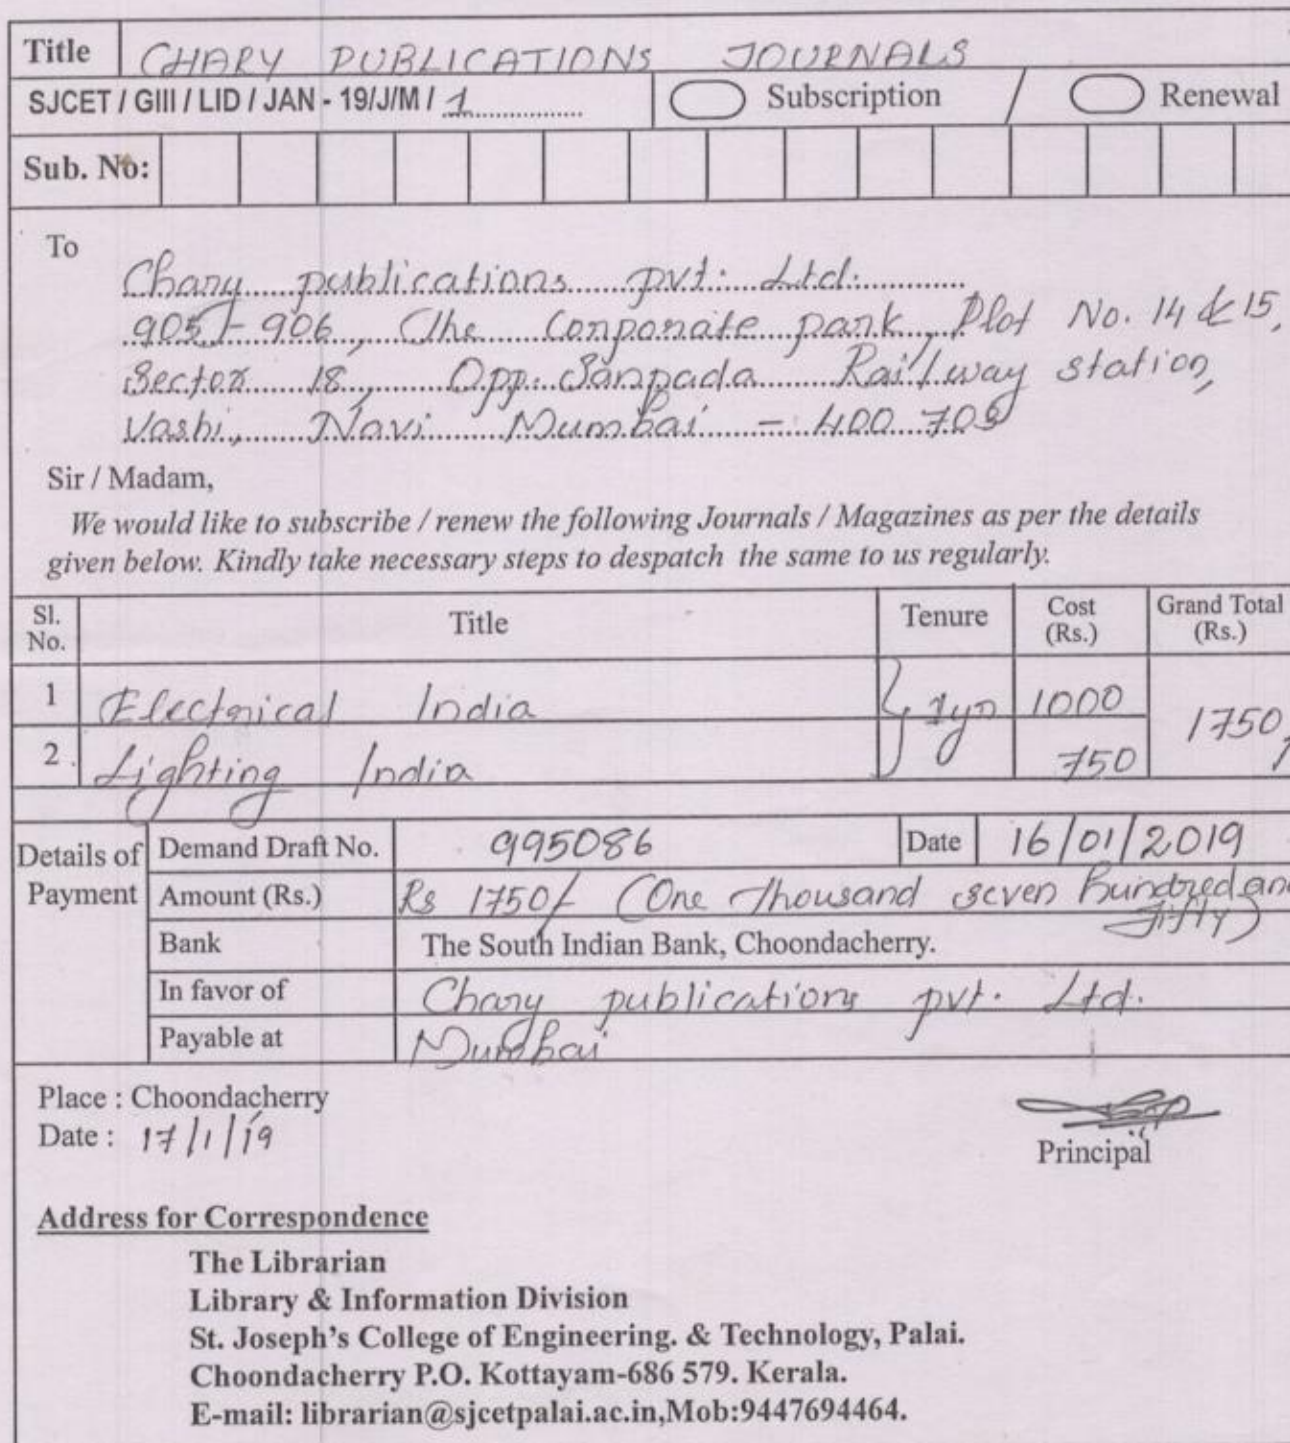 Title CHARY PUBLICATIONS JOURNALS
SJCET / GIII / LID / JAN - 19/J/M / 1 Subscription / Renewal
Sub. No:
To
Chary publications pvt. Ltd.
905 - 906, The Corporate park, Plot No. 14 & 15,
Sector 18, Opp. Sanpada Railway station,
Vashi, Navi Mumbai - 400 705
Sir / Madam,
We would like to subscribe / renew the following Journals / Magazines as per the details
given below. Kindly take necessary steps to despatch the same to us regularly.
Sl. No. Title Tenure Cost (Rs.) Grand Total (Rs.)
1 Electrical India 1yr 1000 1750/
2. Lighting India 750
Details of Payment
Demand Draft No. 995086 Date 16/01/2019
Amount (Rs.) Rs 1750/- (One Thousand seven hundred and
fifty)
Bank The South Indian Bank, Choondacherry.
In favor of Chary publications pvt. Ltd.
Payable at Mumbai
Place : Choondacherry
Date : 17/1/19
Principal
Address for Correspondence
The Librarian
Library & Information Division
St. Joseph's College of Engineering. & Technology, Palai.
Choondacherry P.O. Kottayam-686 579. Kerala.
E-mail: librarian@sjcetpalai.ac.in,Mob:9447694464.